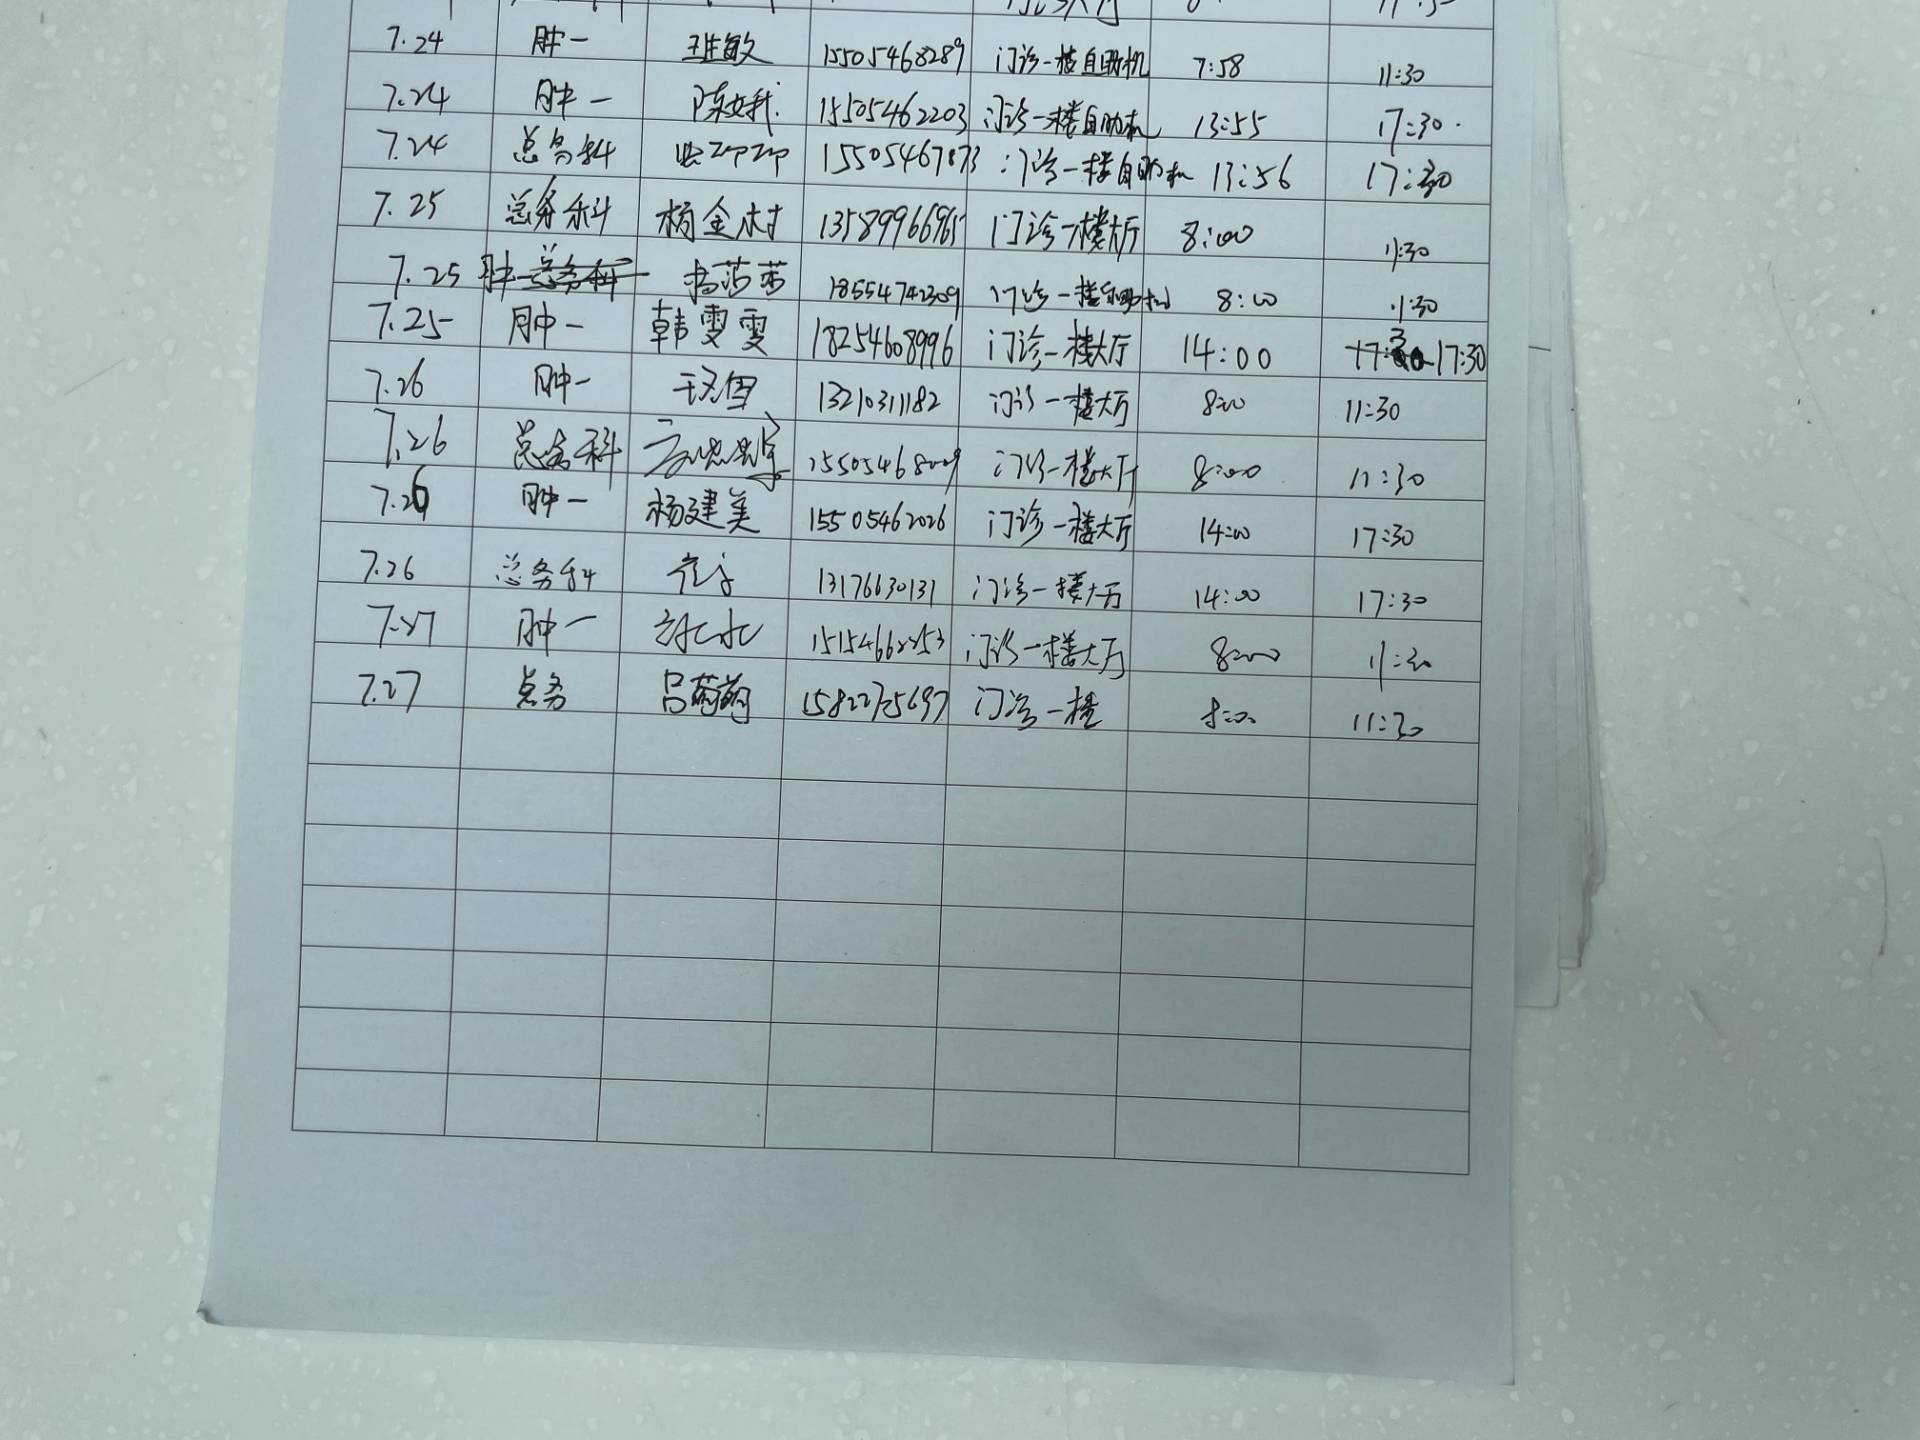 7.24 肿一 王敏 15505468289 门诊一楼自助机 7:58 11:30
7.24 肿一 陈 15505462203 门诊一楼自助机 13:55 17:30
7.24 总务科 15505467873 门诊一楼自助机 13:56 17:30
7.25 总务科 杨金村 13589966965 门诊一楼大厅 8:00 11:30
7.25 肿一 18554742309 门诊一楼自助机 8:00 11:30
7.25 肿一 韩雯雯 18254608996 门诊一楼大厅 14:00 17:30
7.26 肿一 13210311182 门诊一楼大厅 8:00 11:30
7.26 总务科 15505468009 门诊一楼大厅 8:00 11:30
7.26 肿一 杨建美 15505462026 门诊一楼大厅 14:00 17:30
7.26 总务科 13176630131 门诊一楼大厅 14:00 17:30
7.27 肿一 门诊一楼大厅 8:00 11:30
7.27 总务 吕萌萌 门诊一楼 8:00 11:30